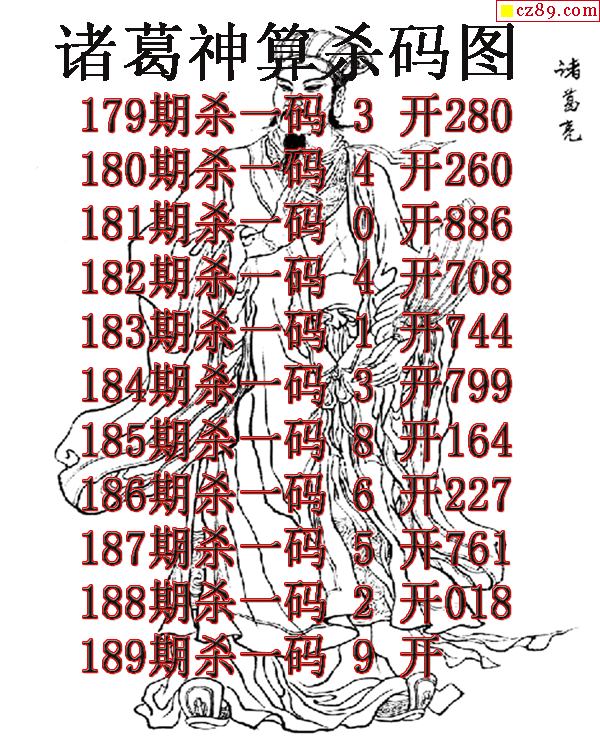 cz89.com
诸葛神算杀码图
诸葛亮
179期杀一码 3 开280
180期杀一码 4 开260
181期杀一码 0 开886
182期杀一码 4 开708
183期杀一码 1 开744
184期杀一码 3 开799
185期杀一码 8 开164
186期杀一码 6 开227
187期杀一码 5 开761
188期杀一码 2 开018
189期杀一码 9 开